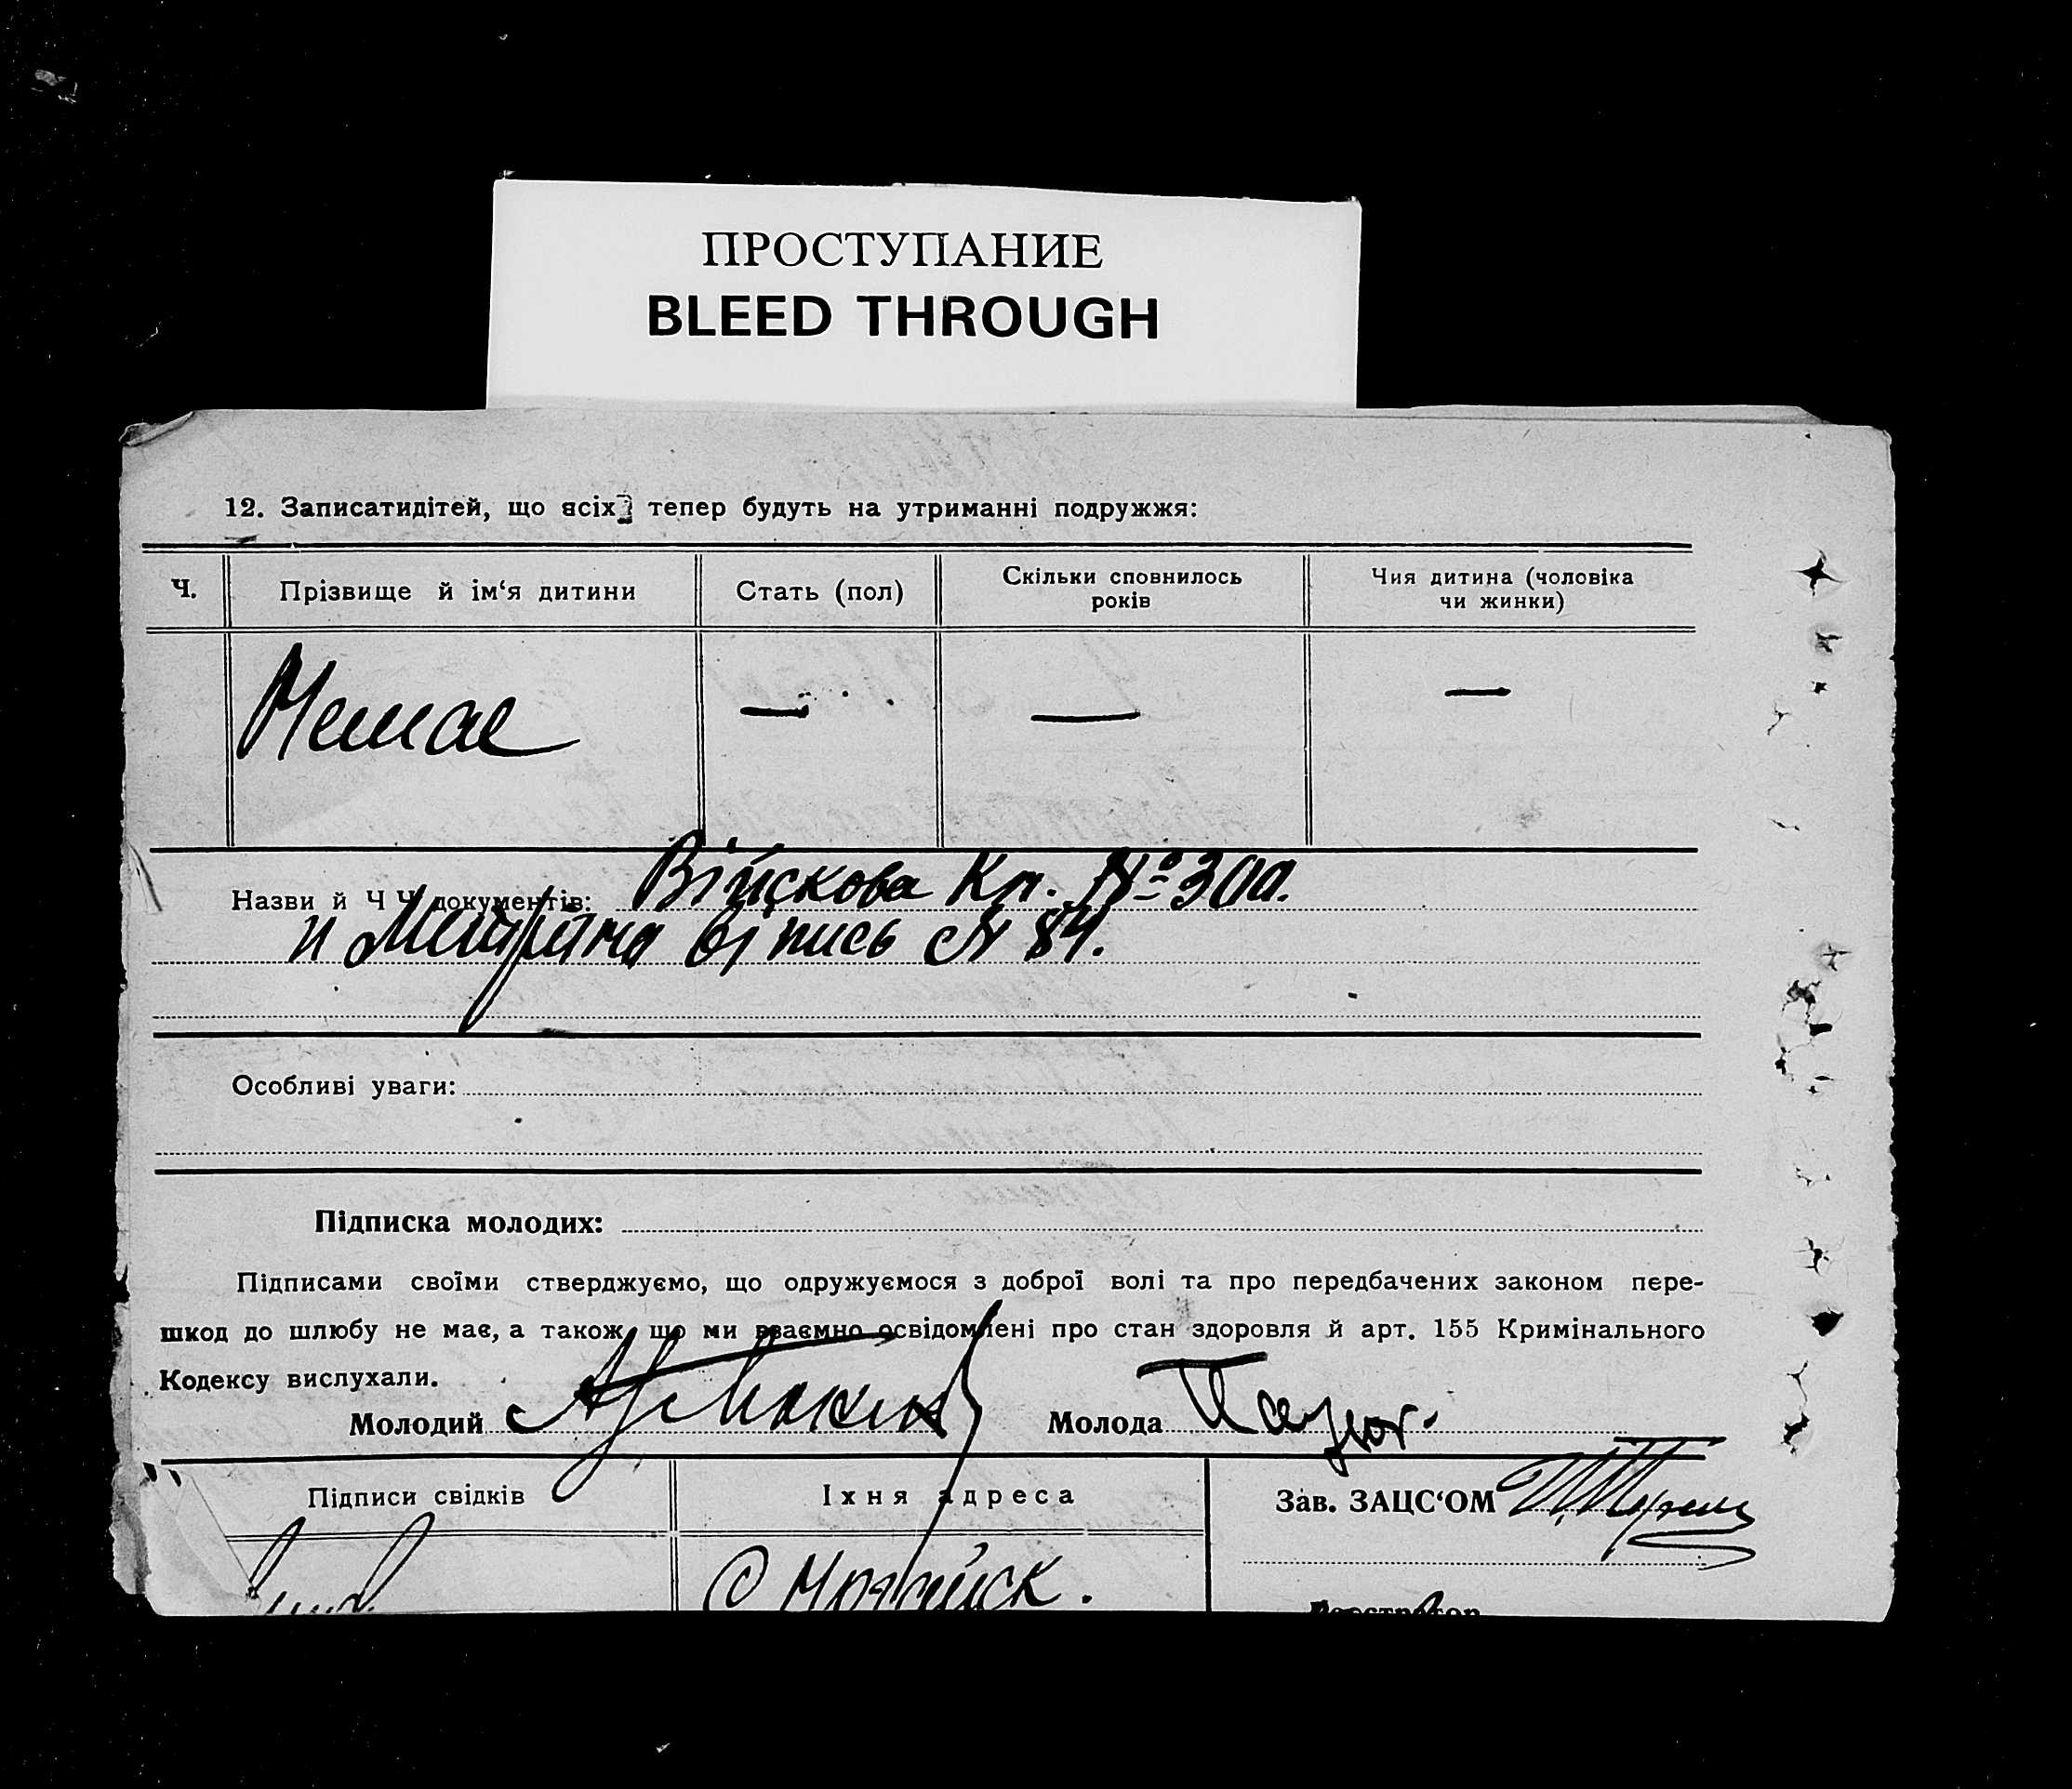 ПРОСТУПАНИЕ
BLEED THROUGH
12. Записатидітей, що всіх тепер будуть на утриманні подружжя:
Ч. Прізвище й ім‘я дитини Стать (пол) Скільки сповнилось років Чия дитина (чоловіка чи жинки)
Немає — — —
Назви й Ч Ч документів: Військова Кн. № 300.
и Метрична віпись № 84.
Особливі уваги:
Підписка молодих:
Підписами своїми стверджуємо, що одружуємося з доброї волі та про передбачених законом пере-
шкод до шлюбу не має, а також що ми взаємно освідомлені про стан здоровля й арт. 155 Кримінального
Кодексу вислухали.
Молодий Молода
Підписи свідків Іхня адреса Зав. ЗАЦС‘ОМ
Реєстратор